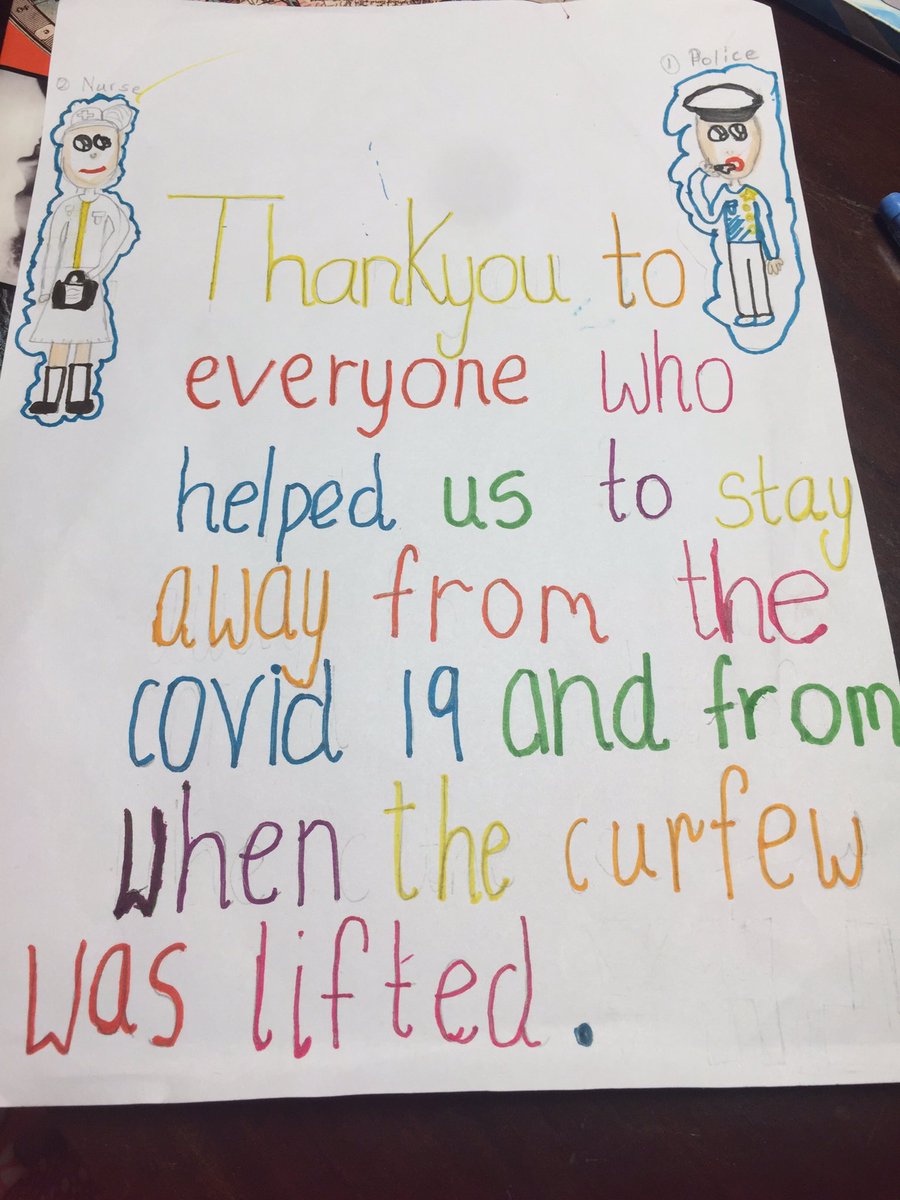 ① Police
② Nurse
Thankyou to
everyone who
helped us to stay
away from the
covid 19 and from
when the curfew
was lifted.